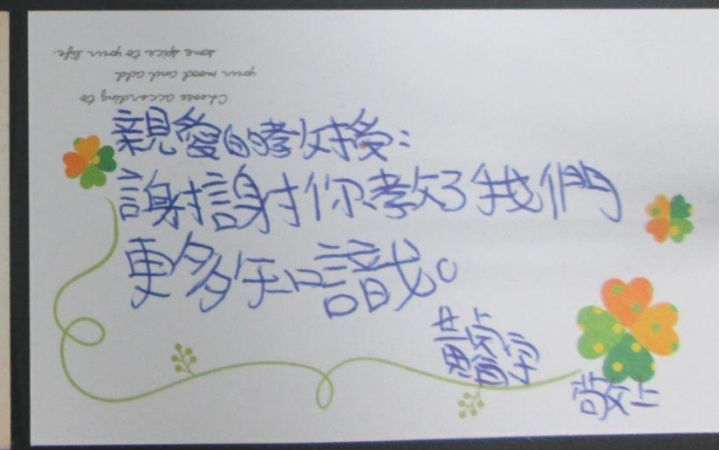 Choose according to
your mood and add
some spice to your life.
親愛的教授:
謝謝你教了我們
更多知識。
敬上